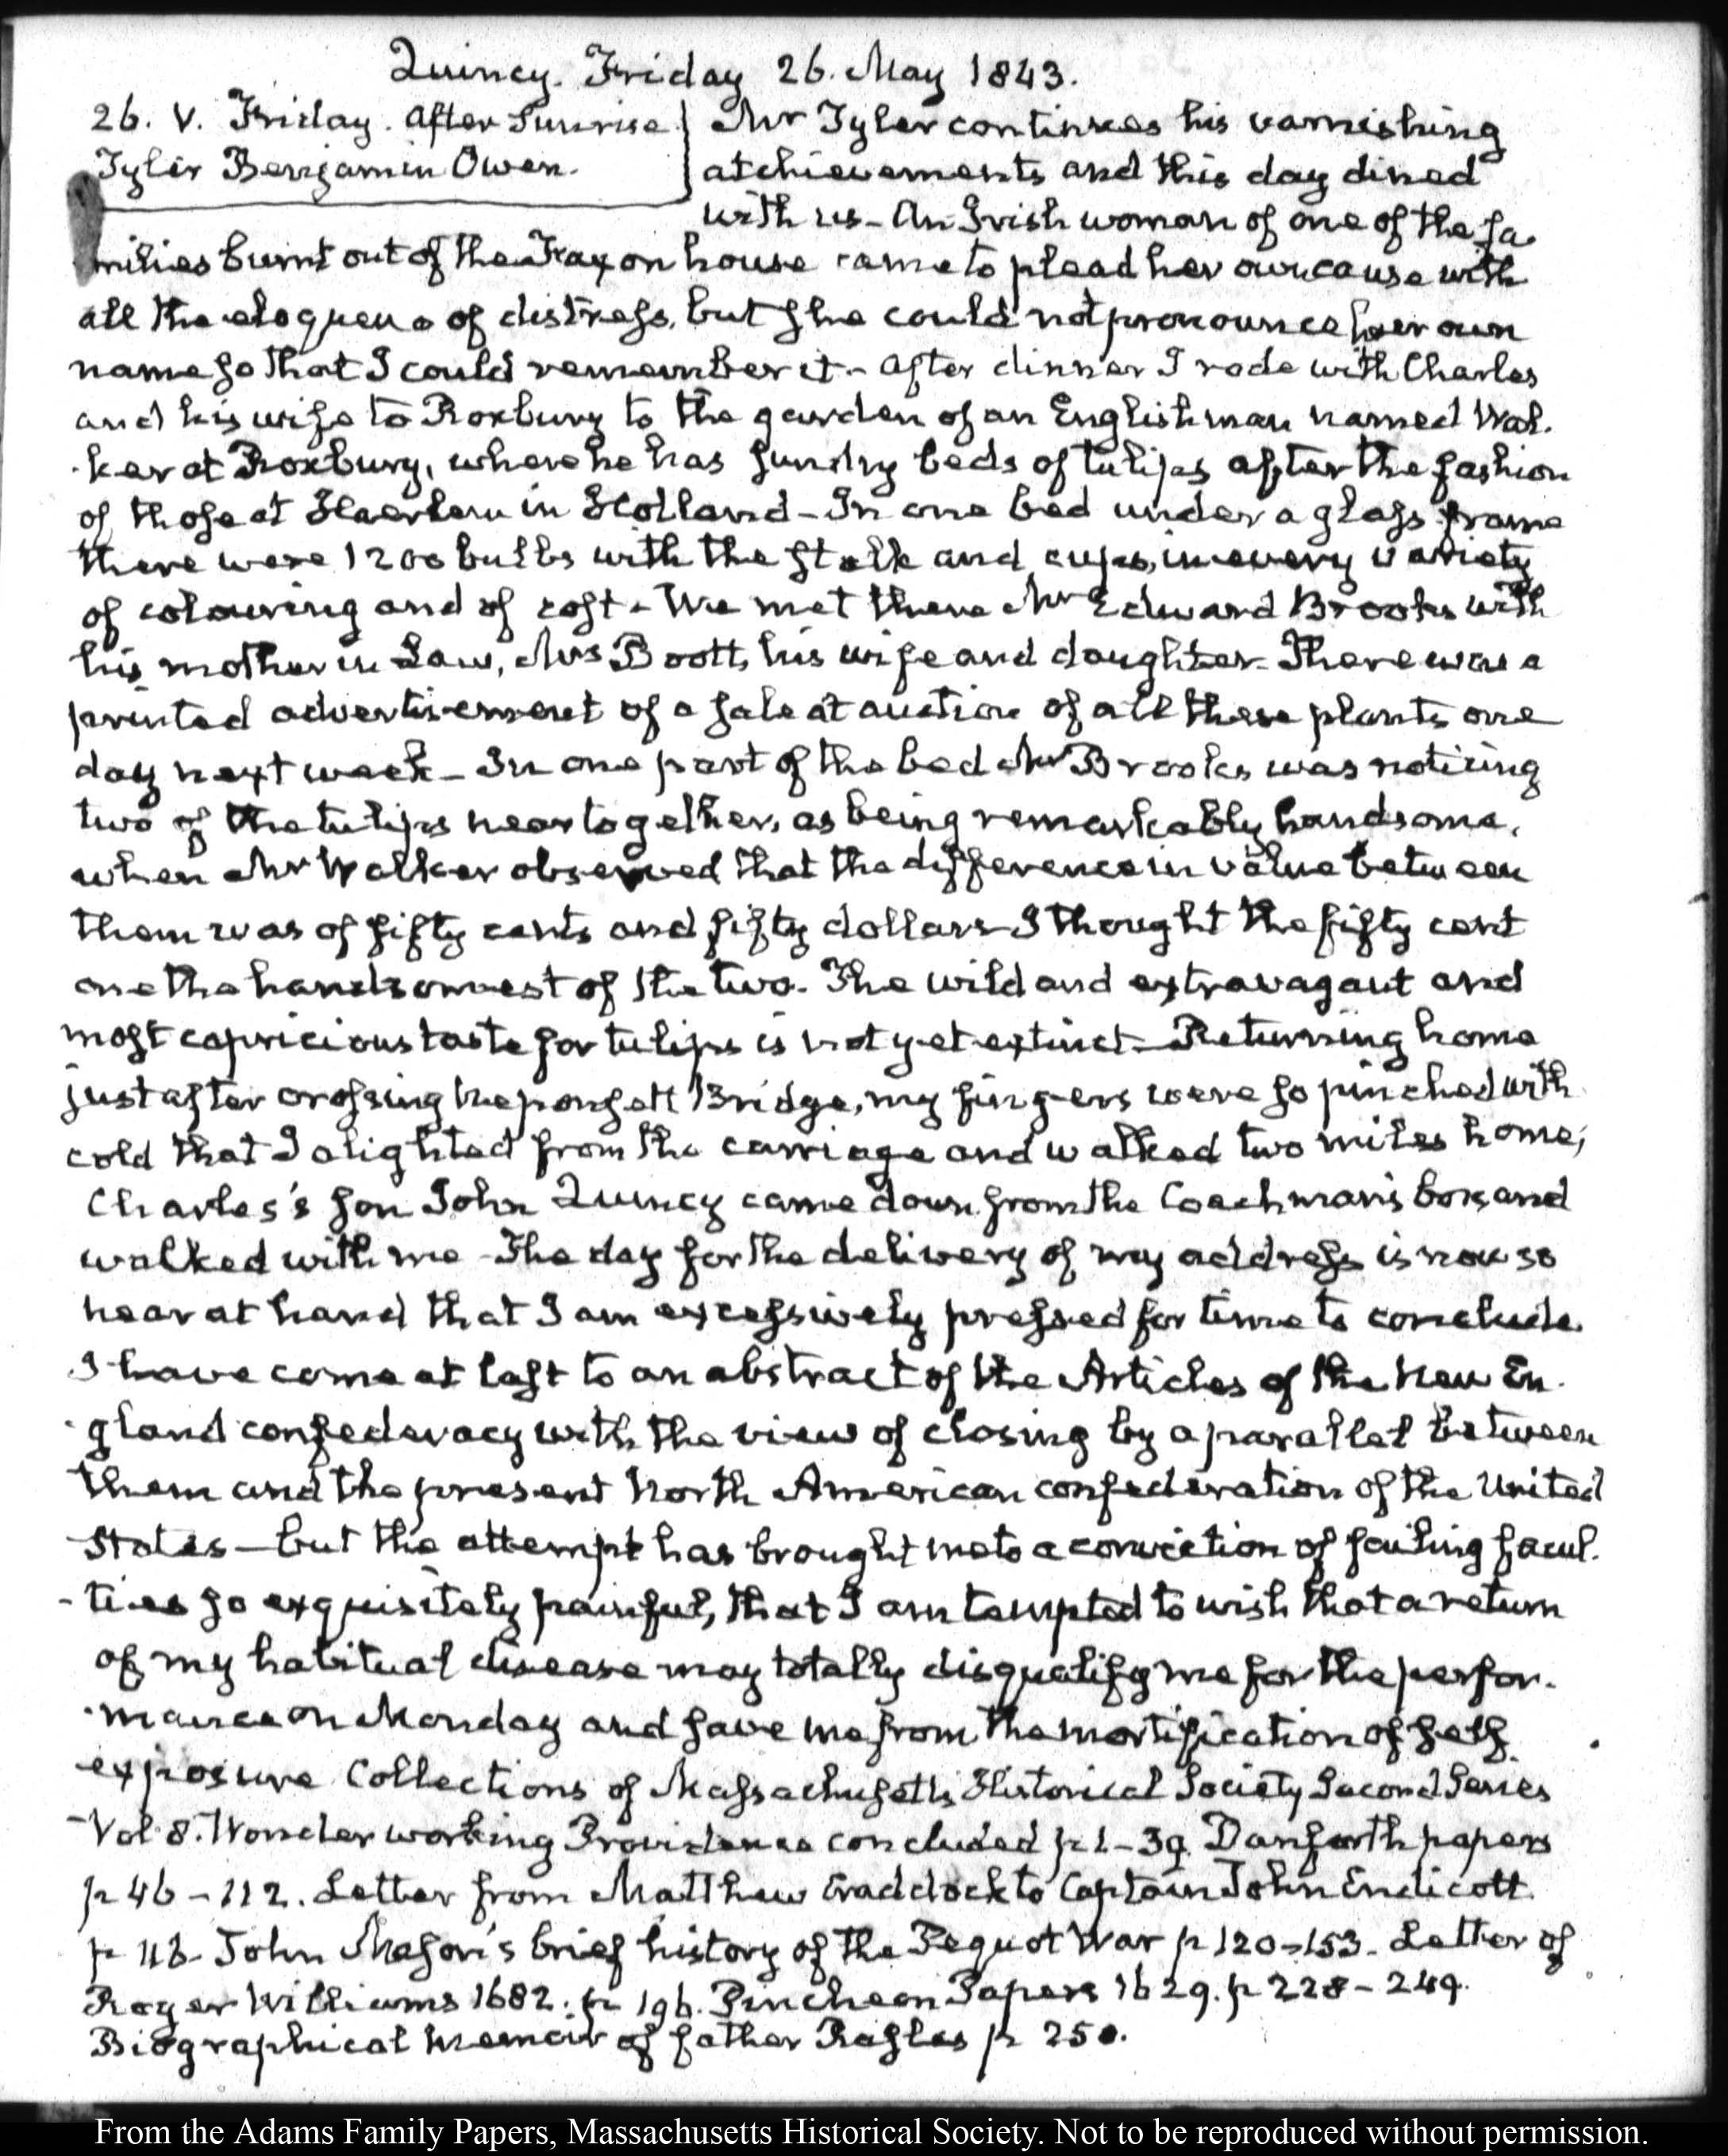 Quincy. Friday 26. May 1843.
26. V. Friday. After Sunrise
Tyler Benjamin Owen.
Mr Tyler continues his varnishing
atchievements and this day dined
with us - An Irish woman of one of the fa-
milies burnt out of the house came to plead her own cause with
all the eloquence of distress, but she could not pronounce her own
name so that I could remember it - After dinner I rode with Charles
and his wife to Roxbury to the garden of an Englishman named Wal-
-ker at Roxbury, where he has sundry beds of tulips after the fashion
of those at Haerlem in Holland - In one bed under a glass frame
there were 1200 bulbs with the stalk and cups, in every variety
of colouring and of cost - We met there Mr Edward Brooks with
his mother in Law, Mrs Boott, his wife and daughter - There was a
printed advertisement of a sale at auction of all these plants one
day next week - In one part of the bed Mr Brooks was noticing
two of the tulips near together, as being remarkably handsome,
when Mr Walker observed that the difference in value between
them was of fifty cents and fifty dollars - I thought the fifty cent
one the handsomest of the two. The wild and extravagant and
most capricious taste for tulips is not yet extinct - Returning home
just after crossing Neponsett Bridge, my fingers were so pinched with
cold that I alighted from the carriage and walked two miles home;
Charles's son John Quincy came down from the Coachman's box and
walked with me - The day for the delivery of my address is now so
near at hand that I am excessively pressed for time to conclude
I have come at last to an abstract of the Articles of the New En-
-gland confederacy with the view of closing by a parallel between
them and the present North American confederation of the United
States - but the attempt has brought me to a conviction of failing facul-
-ties so exquisitely painful, that I am tempted to wish that a return
of my habitual disease may totally disqualify me for the perfor-
-mance on Monday and save me from the mortification of self
exposure Collections of Massachusetts Historical Society Second Series
Vol. 8. Wonder working Providence concluded p 1-39. Danforth papers
p 46-112. Letter from Matthew Craddock to Captain John Endicott
p 116 - John Mason's brief history of the Pequot War p 120-153 - Letter of
Roger Williams 1682. p 196. Pincheon Papers 1629. p 228-249.
Biographical Memoir of father Rasles p 250.
From the Adams Family Papers, Massachusetts Historical Society. Not to be reproduced without permission.